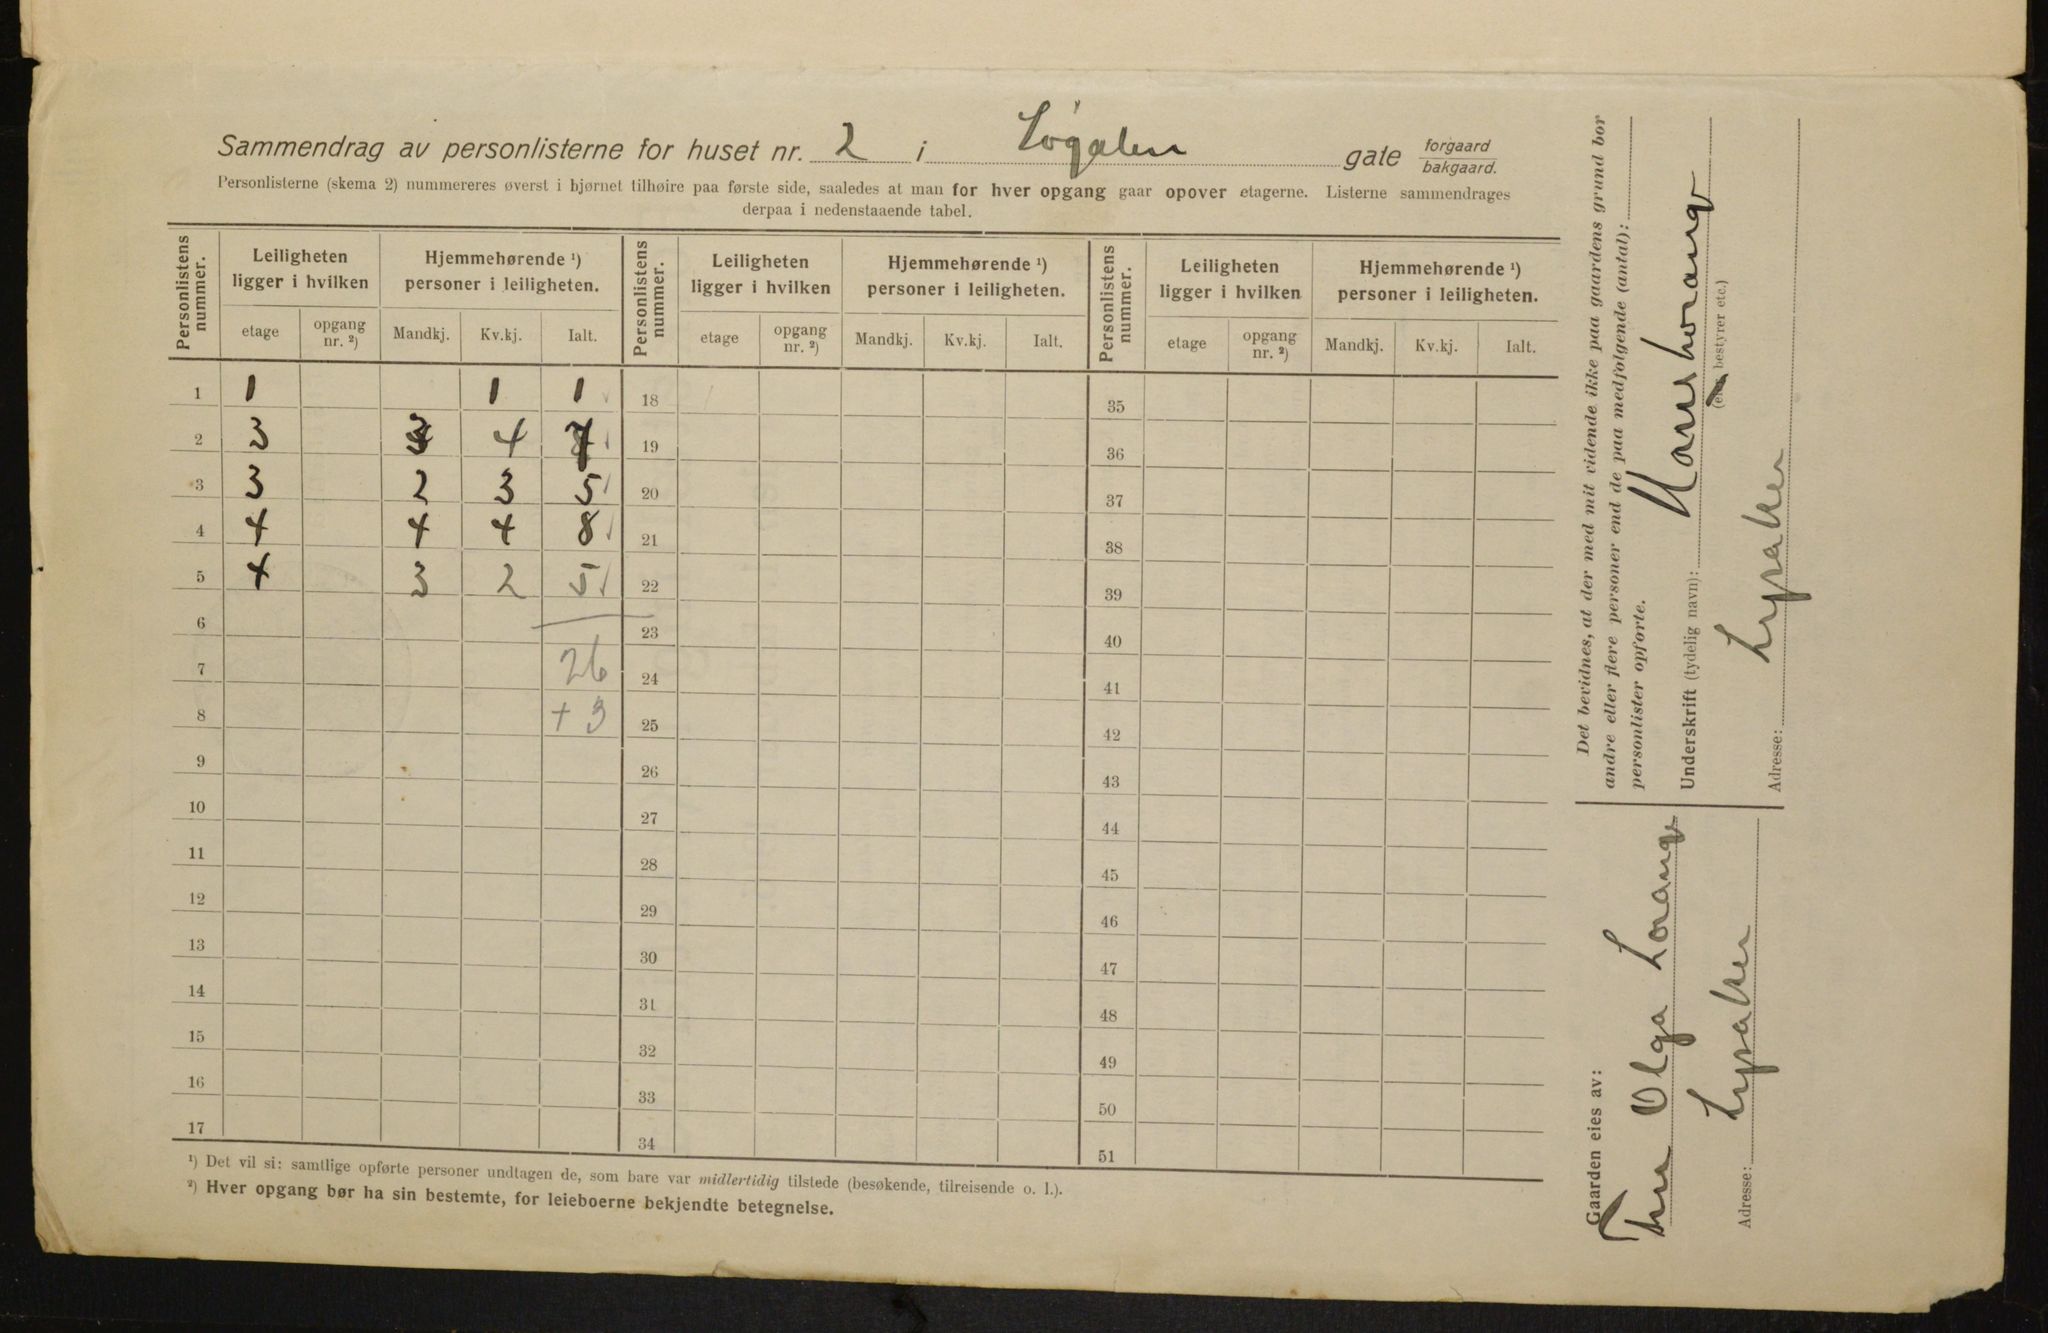 Sammendrag av personlisterne for huset nr. 2 i Løgalen gate forgaard bakgaard.
Personlisterne (skema 2) nummereres øverst i hjørnet tilhøire paa første side, saaledes at man for hver opgang gaar opover etagerne. Listerne sammendrages
derpaa i nedenstaaende tabel.
Personlistens nummer. Leiligheten ligger i hvilken Hjemmehørende ¹) personer i leiligheten. Personlistens nummer. Leiligheten ligger i hvilken Hjemmehørende ¹) personer i leiligheten. Personlistens nummer. Leiligheten ligger i hvilken Hjemmehørende ¹) personer i leiligheten.
etage opgang nr. ²) Mandkj. Kv.kj. Ialt. etage opgang nr. ²) Mandkj. Kv.kj. Ialt. etage opgang nr. ²) Mandkj. Kv.kj. Ialt.
1 1 1 1 18 35
2 3 3 4 7 19 36
3 3 2 3 5 20 37
4 4 4 4 8 21 38
5 4 3 2 5 22 39
6 23 40
7 26 24 41
8 + 3 25 42
9 26 43
10 27 44
11 28 45
12 29 46
13 30 47
14 31 48
15 32 49
16 33 50
17 34 51
¹) Det vil si: samtlige opførte personer undtagen de, som bare var midlertidig tilstede (besøkende, tilreisende o. l.).
²) Hver opgang bør ha sin bestemte, for leieboerne bekjendte betegnelse.
Det bevidnes, at der med mit vidende ikke paa gaardens grund bor
andre eller flere personer end de paa medfølgende (antal):
personlister opførte.
Underskrift (tydelig navn): Lorang
bestyrer etc.)
Adresse: Lysaker
Gaarden eies av:
Fru Olga Lorang
Adresse: Lysaker